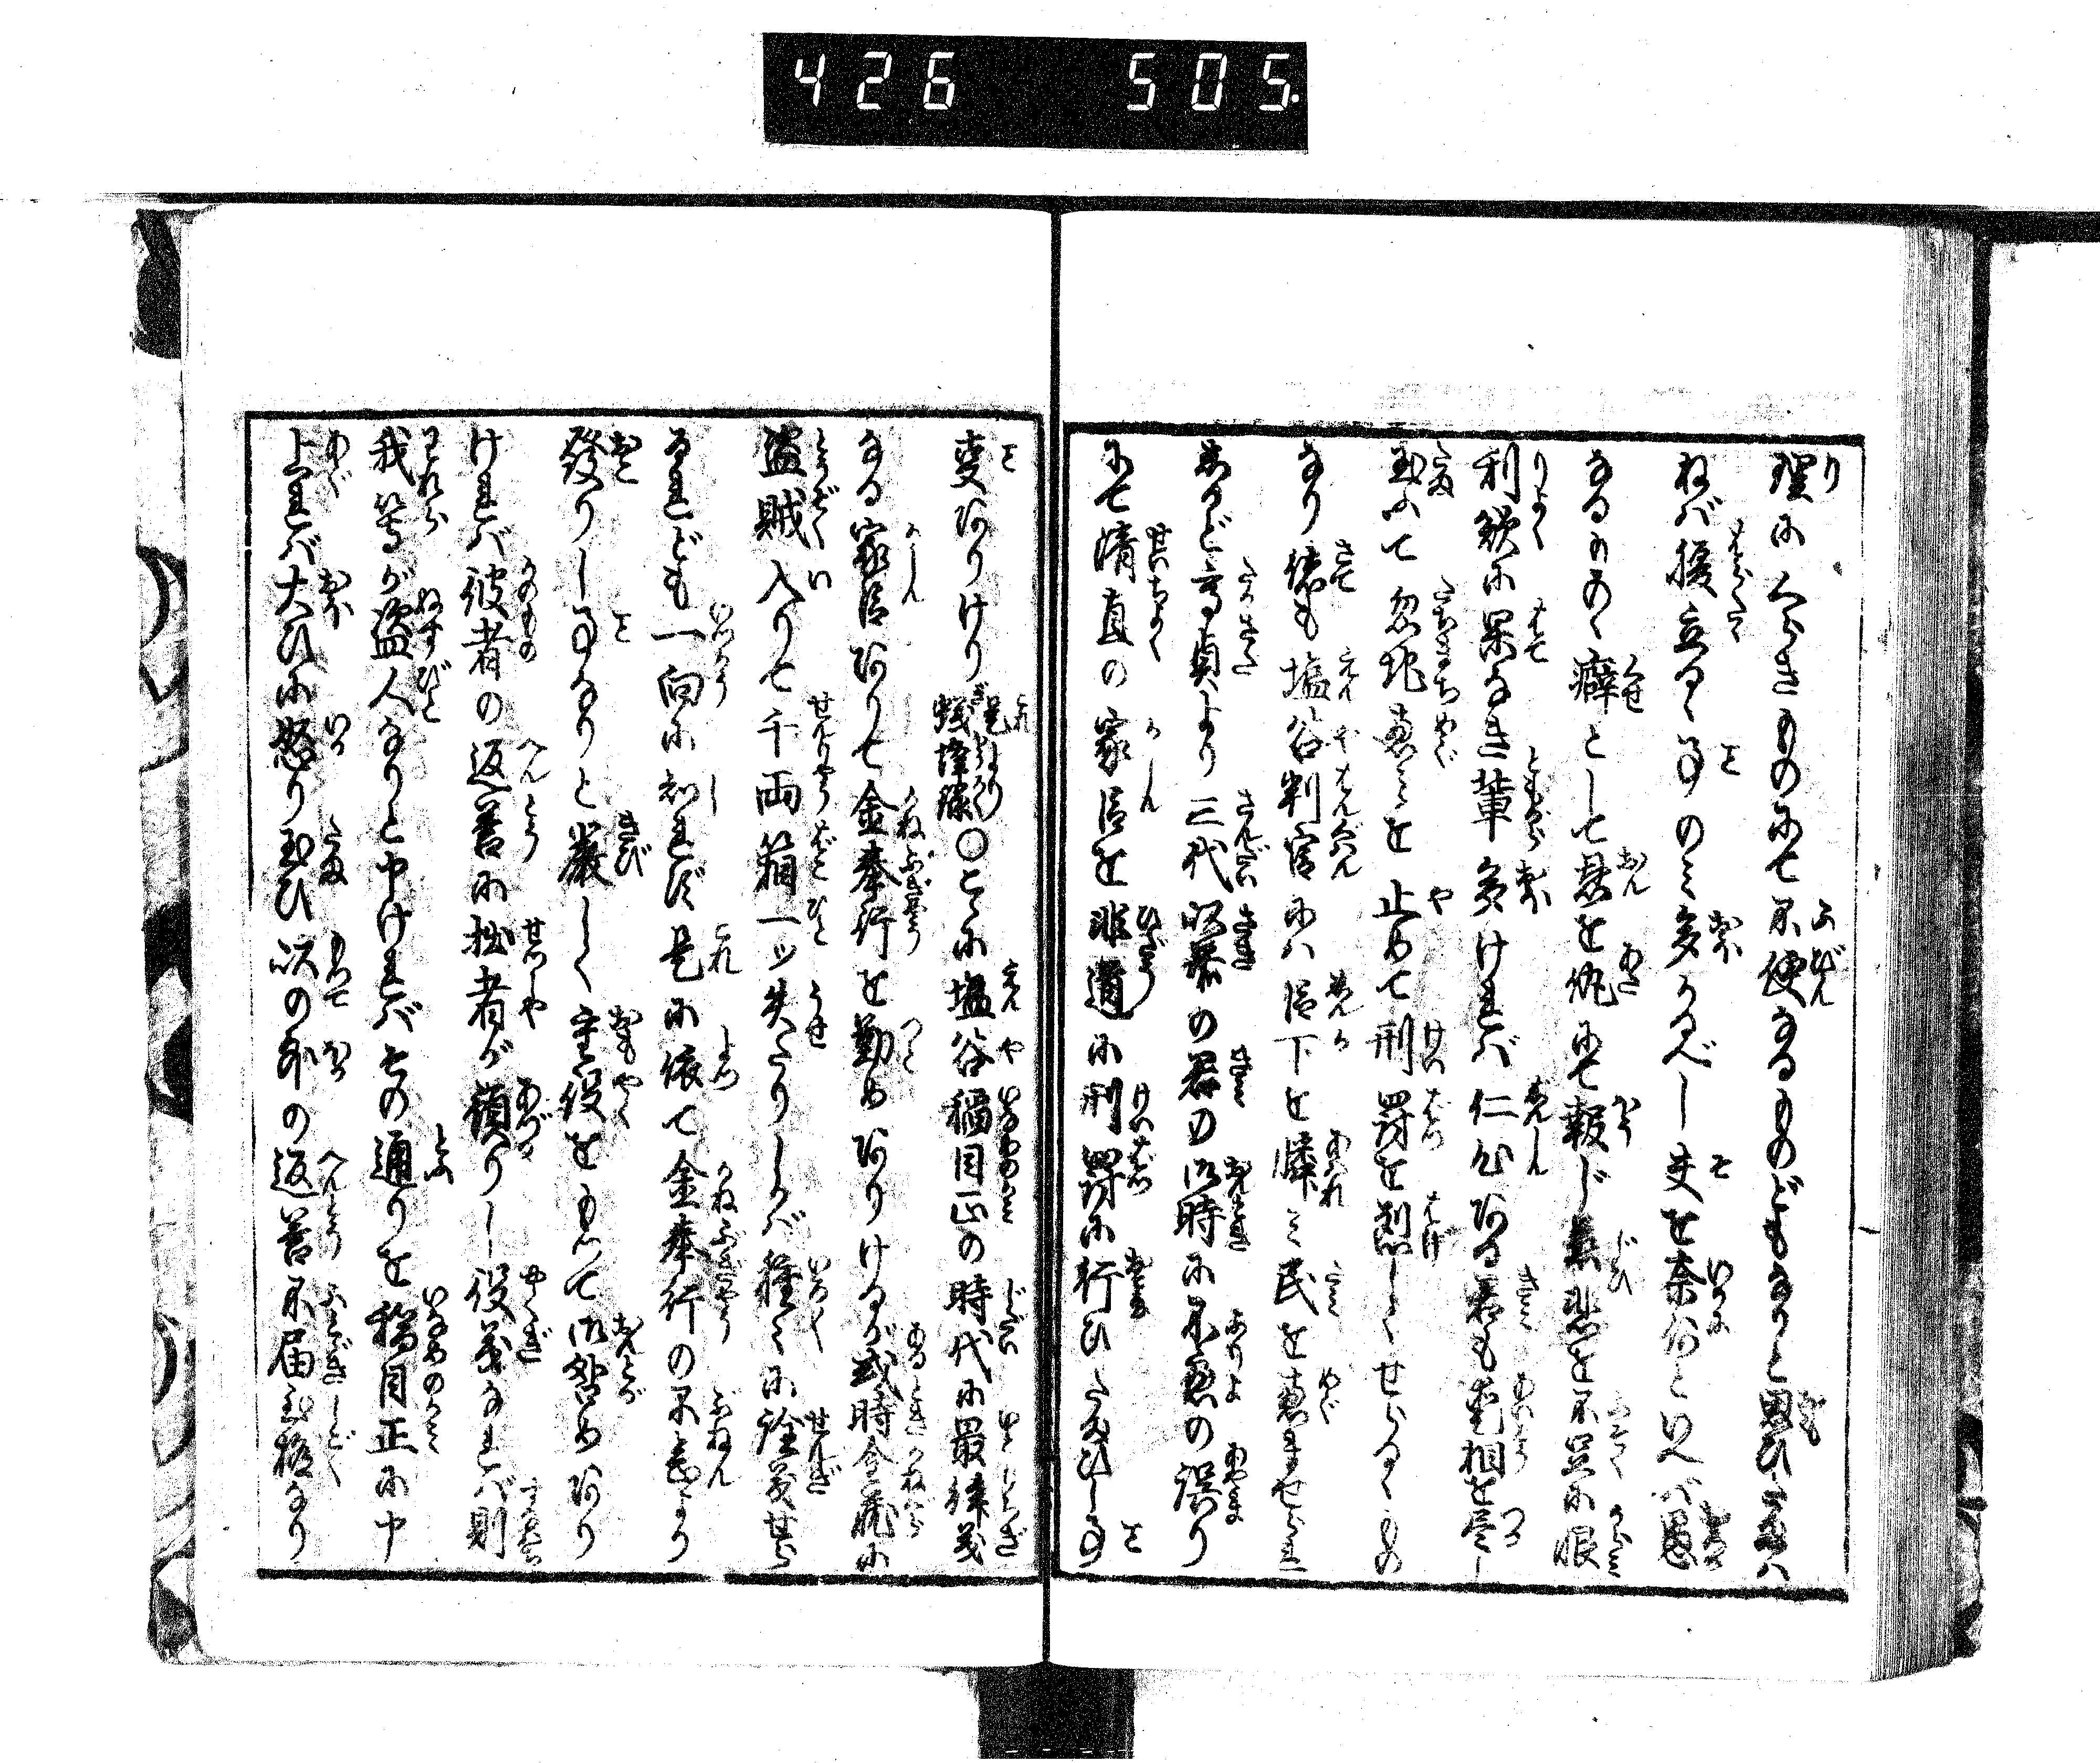 426 505.
理にくらきものにて不便なるものどもなりと思ひ
ねば腹立るゝ事のみ多かるべし夫を奈何といへば愚
なるものゝ癖として恩を仇にて報じ慈悲を不足に恨
利欲に果なき輩多ければ仁心ある君も愛相を尽し
玉ふて忽地恵みを止めて刑罰を烈しくせらるゝもの
なり偖も塩谷判官には臣下を憐み民を恵ませられ
しかど高貞より三代以前の君の御時に不慮の誤り
にて清直の家臣を非道に刑罰に行ひたまひし事
変ありけり是より〇こゝに塩谷稲目正の時代に最律義
なる家臣ありて金奉行を勤めありけるが或時金蔵に
盗賊入りて千両箱一ッ失たりしかば種々に詮義せら
るれども一向に知れず是に依て金奉行の不念より
発りし事なりと厳しく重役をもつて御咎めあり
ければ彼者の返答に拙者が預りし役義なれば則
我等が盗人なりと申ければその通りを稲目正に申
上ければ大ひに怒り玉ひ以の外の返答不届至極なり